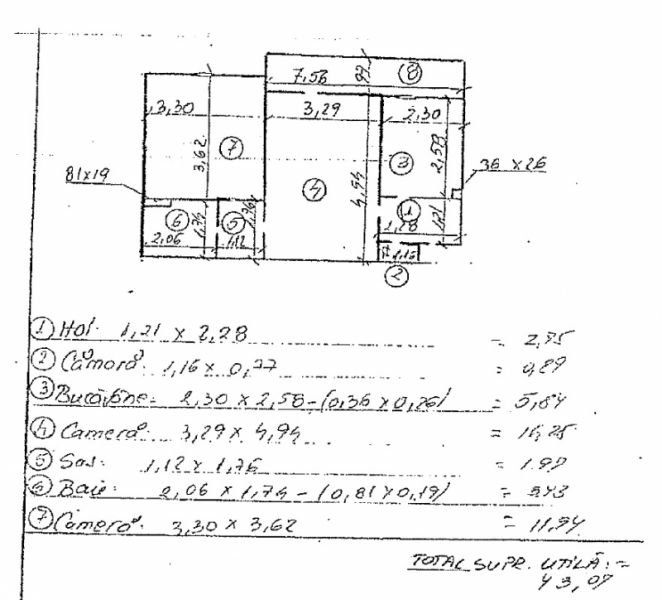 7,56
8
3,30
3,29
2,30
3,62
7
4
4,94
3
2,59
36 x 26
81x19
6
1,74
5
1,76
1
1,21
2,28
2,06
1,12
1,16
2
① Hol: 1,21 x 2,28 =
② Cămară: 1,16 x 0,77 = 0,89
③ Bucătărie: 2,30 x 2,58 - (0,36 x 0,26) = 5,84
④ Cameră: 3,29 x 4,94 = 16,25
⑤ Sas: 1,12 x 1,76 = 1,97
⑥ Baie: 2,06 x 1,74 - (0,81 x 0,19) = 3,43
⑦ Cameră: 3,30 x 3,62 = 11,94
TOTAL SUPR. UTILĂ: =
43,07